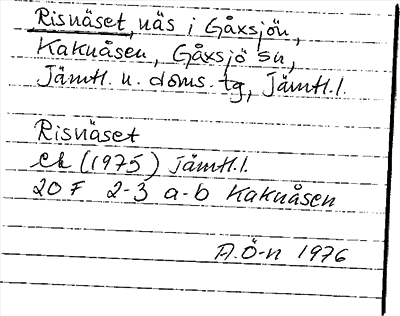 Risnäset, näs i Gåxsjön,
Kakuåsen, Gåxsjö sn,
Jämtl. n. doms. tg, Jämtl. l.
Risnäset
ek (1975) Jämtl. l.
20 F 2-3 a-b Kakuåsen
A.Ö-n 1976